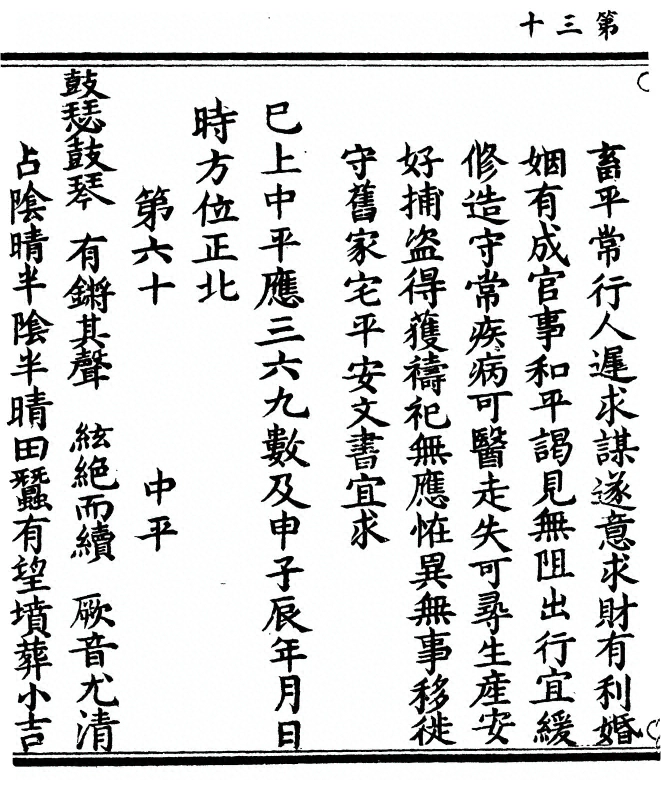 第三十
畜平常行人遲求謀遂意求財有利婚
姻有成官事和平謁見無阻出行宜緩
修造守常疾病可醫走失可尋生產安
好捕盜得獲禱祀無應怪異無事移徙
守舊家宅平安文書宜求
已上中平應三六九數及申子辰年月日
時方位正北
第六十　中平
鼓瑟鼓琴　有鏘其聲　絃絕而續　厥音尤清
占陰晴半陰半晴田蠶有望墳葬小吉